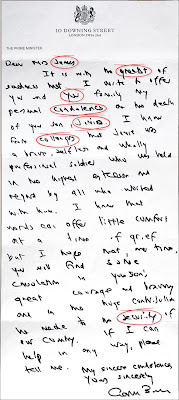 10 DOWNING STREET
LONDON SW1A 2AA
THE PRIME MINISTER
Dear Mrs James
It is with the greatest of
sadness that I write to offer
you and your family my
personal condolences on the death
of your son I know
from colleagues that Jamie was
a brave, selfless and wholly
professional soldier who was held
in the highest esteem and
regard by all who worked
with him. I know that
words can offer little comfort
at a time of grief
but I hope that, in time,
you will find some
consolation in your son's
great courage and bravery
and in the huge contribution
he made to the security of
our country. If I can
help in any way, please
tell me. My sincere condolences,
Yours sincerely